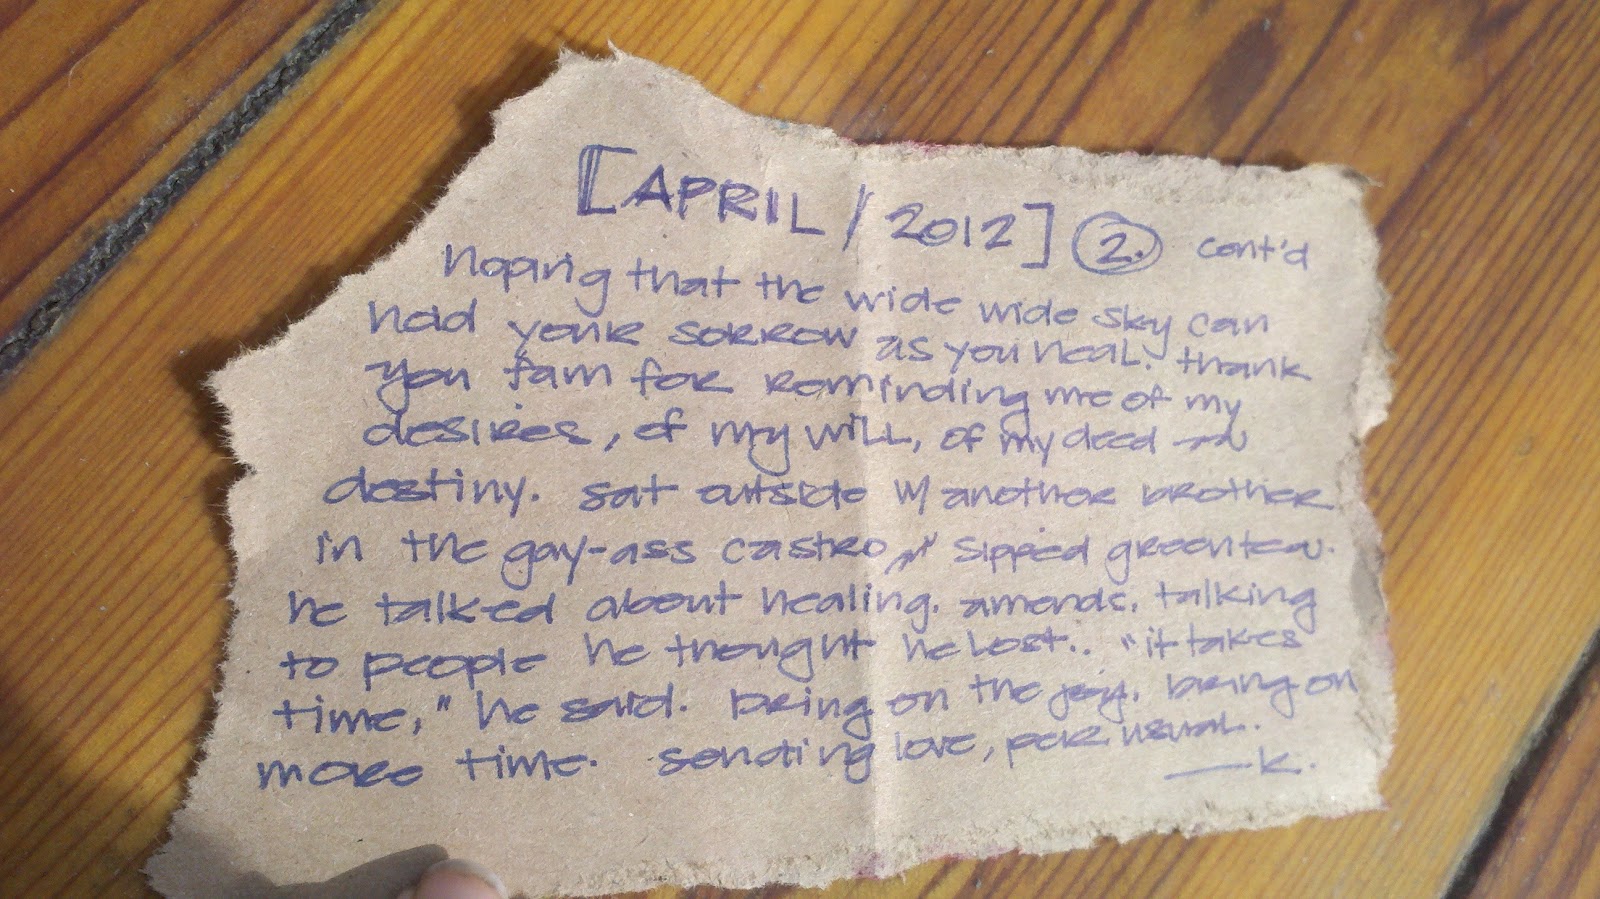 [APRIL / 2012] 2. cont'd
hoping that the wide wide sky can
hold your sorrow as you heal. thank
you fam for reminding me of my
desires, of my will, of my deed ~
destiny. sat outside w/ another brother
in the gay-ass castro, sipped green tea.
he talked about healing. amends. talking
to people he thought he lost.. "it takes
time," he said. bring on the joy. bring on
more time. sending love, per usual.
—k.